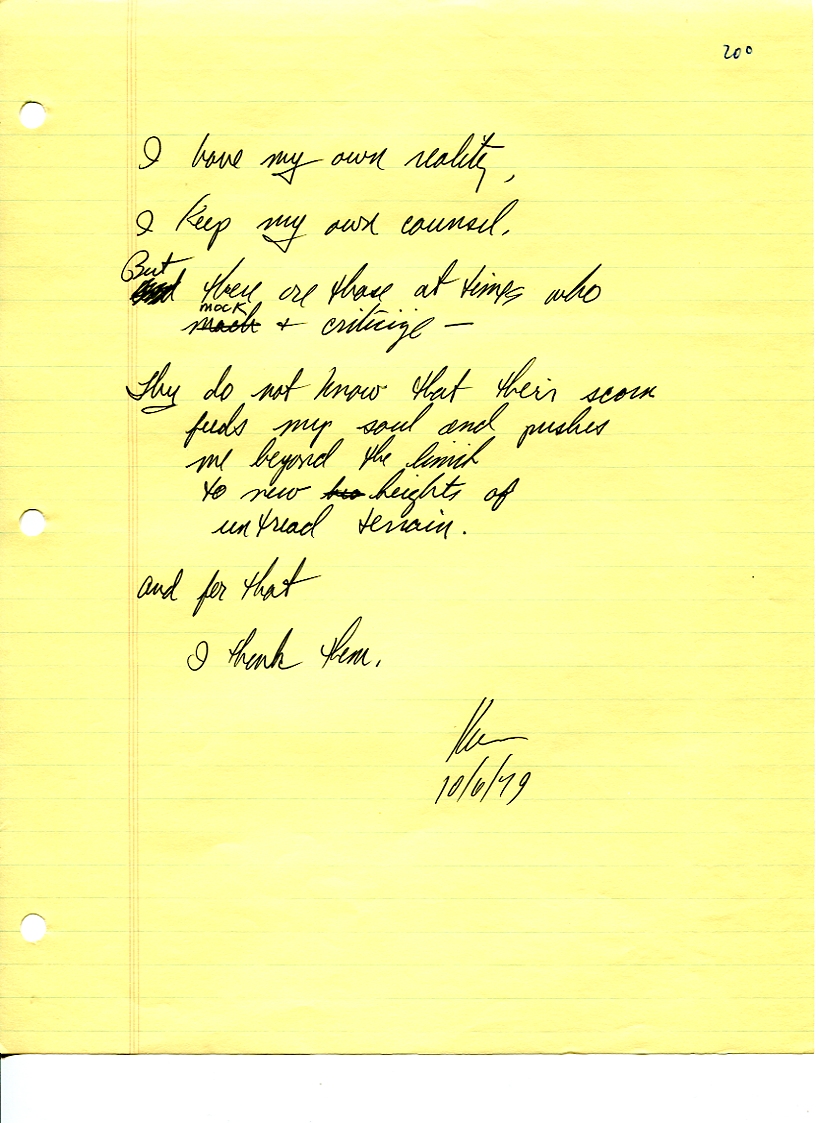 200
I have my own reality,
I keep my own counsel.
But
there are those at times who
mock
mach + criticize —
They do not know that their scorn
feeds my soul and pushes
me beyond the limit
to new heights of
untread terrain.
and for that
I thank them.
10/6/79